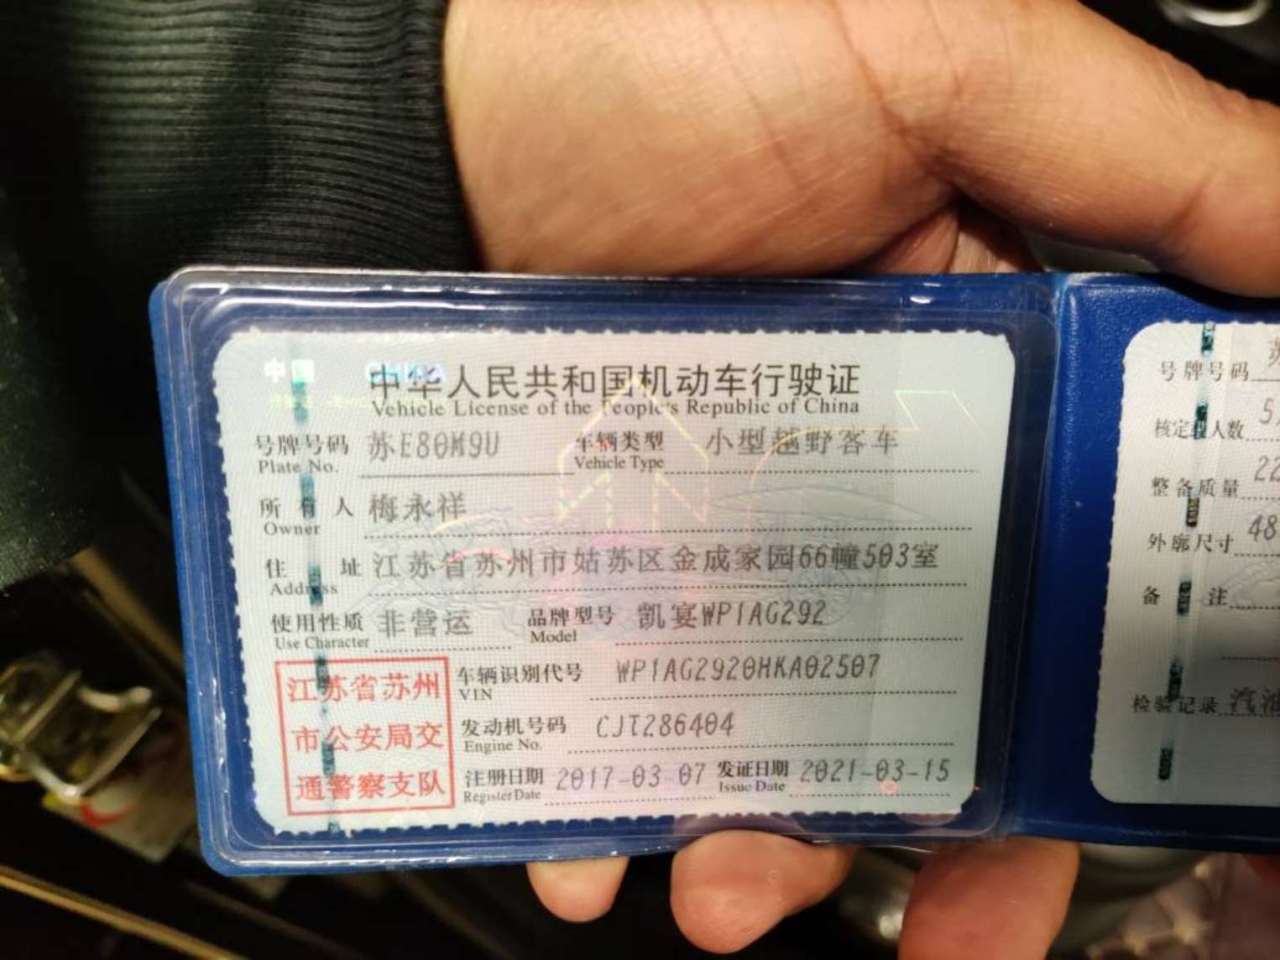 中国 CHINA
中华人民共和国机动车行驶证
Vehicle License of the People's Republic of China
号牌号码 苏E80M9U 车辆类型 小型越野客车
Plate No. Vehicle Type
所有人 梅永祥
Owner
住址 江苏省苏州市姑苏区金成家园66幢503室
Address
使用性质 非营运 品牌型号 凯宴WP1AG292
Use Character Model
江苏省苏州
市公安局交
通警察支队
车辆识别代号 WP1AG2920HKA02507
VIN
发动机号码 CJT286404
Engine No.
注册日期 2017-03-07 发证日期 2021-03-15
Register Date Issue Date
号牌号码
核定载人数 5
整备质量 22
外廓尺寸 48
备注
检验记录 汽油